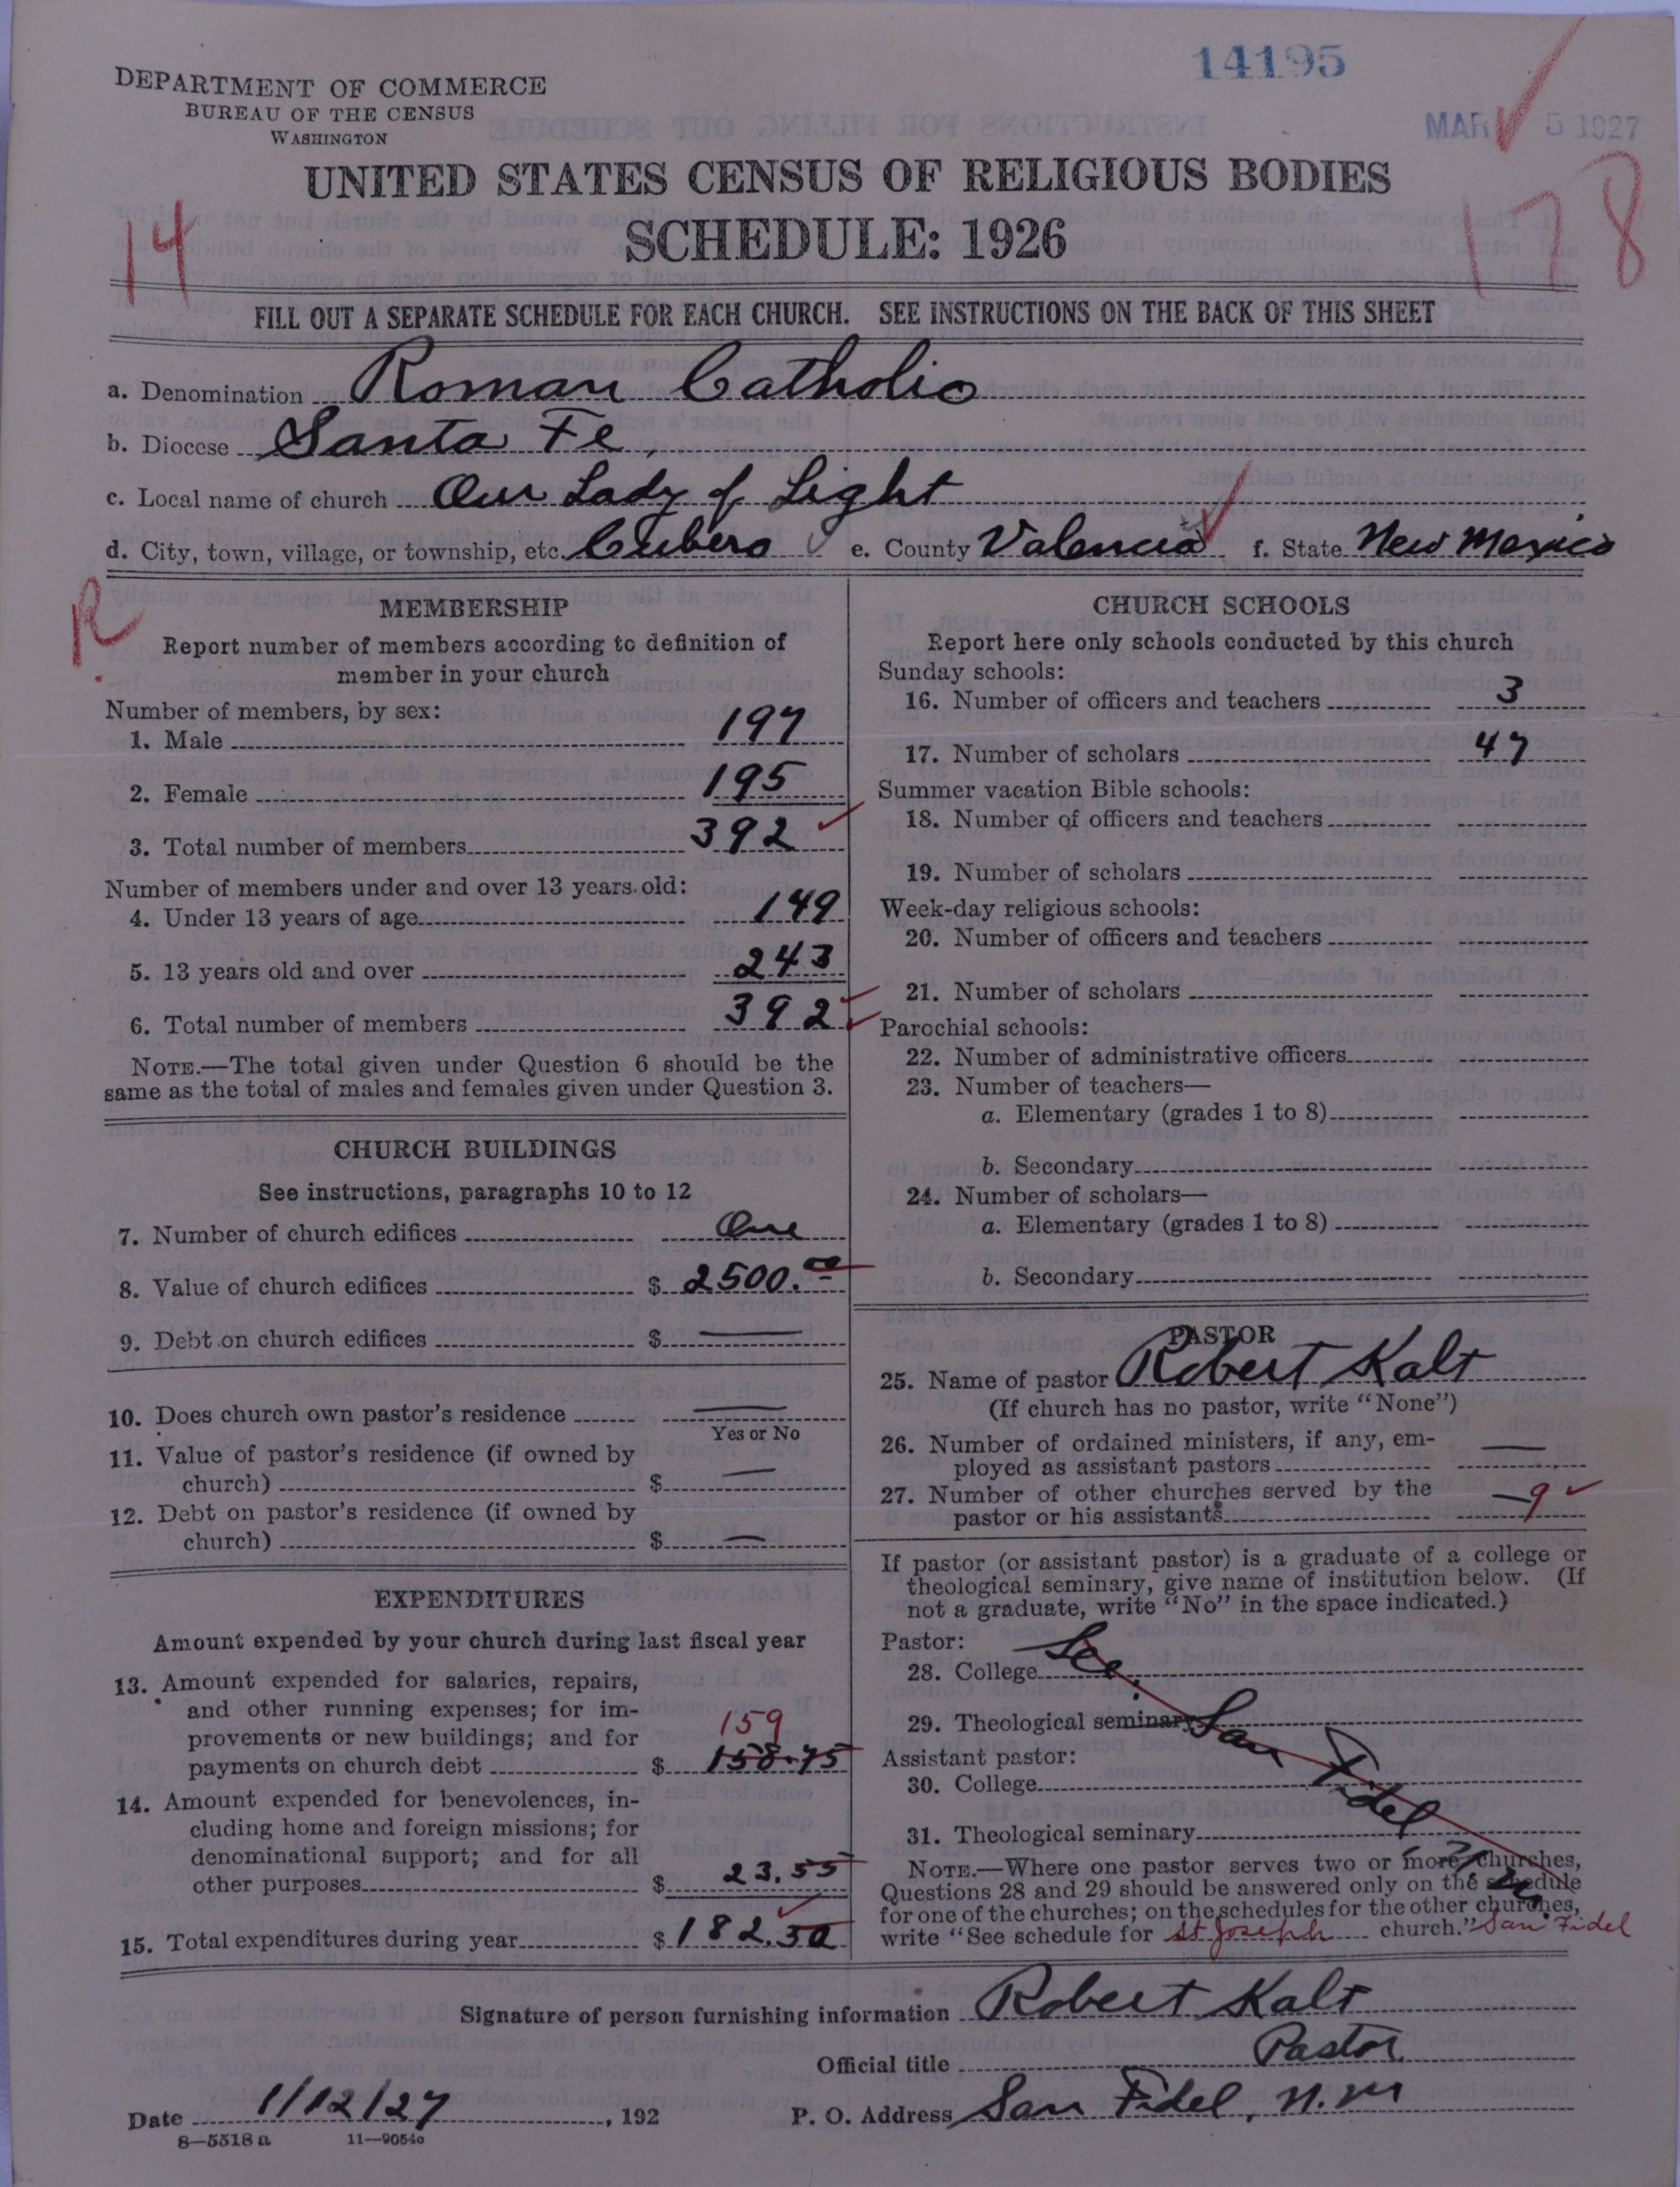 14195
DEPARTMENT OF COMMERCE
BUREAU OF THE CENSUS
WASHINGTON
MAR 5 1927
UNITED STATES CENSUS OF RELIGIOUS BODIES
SCHEDULE: 1926
14
178
FILL OUT A SEPARATE SCHEDULE FOR EACH CHURCH. SEE INSTRUCTIONS ON THE BACK OF THIS SHEET
a. Denomination Roman Catholic
b. Diocese Santa Fe,
c. Local name of church Our Lady of Light
d. City, town, village, or township, etc. Cubero e. County Valencia f. State New Mexico
R
MEMBERSHIP
Report number of members according to definition of
member in your church
Number of members, by sex:
1. Male 197
2. Female 195
3. Total number of members 392
Number of members under and over 13 years old:
4. Under 13 years of age 149
5. 13 years old and over 243
6. Total number of members 392
NOTE.—The total given under Question 6 should be the
same as the total of males and females given under Question 3.
CHURCH BUILDINGS
See instructions, paragraphs 10 to 12
7. Number of church edifices One
8. Value of church edifices $ 2500.00
9. Debt on church edifices $ —
10. Does church own pastor's residence —
Yes or No
11. Value of pastor's residence (if owned by
church) $ —
12. Debt on pastor's residence (if owned by
church) $ —
EXPENDITURES
Amount expended by your church during last fiscal year
13. Amount expended for salaries, repairs,
and other running expenses; for im-
provements or new buildings; and for
159
payments on church debt $ 158.75
14. Amount expended for benevolences, in-
cluding home and foreign missions; for
denominational support; and for all
other purposes $ 23.55
15. Total expenditures during year $ 182.30
CHURCH SCHOOLS
Report here only schools conducted by this church
Sunday schools:
16. Number of officers and teachers 3
17. Number of scholars 47
Summer vacation Bible schools:
18. Number of officers and teachers
19. Number of scholars
Week-day religious schools:
20. Number of officers and teachers
21. Number of scholars
Parochial schools:
22. Number of administrative officers
23. Number of teachers—
a. Elementary (grades 1 to 8)
b. Secondary
24. Number of scholars—
a. Elementary (grades 1 to 8)
b. Secondary
PASTOR
25. Name of pastor Robert Kalt
(If church has no pastor, write "None")
26. Number of ordained ministers, if any, em-
ployed as assistant pastors —
27. Number of other churches served by the
pastor or his assistants — 9
If pastor (or assistant pastor) is a graduate of a college or
theological seminary, give name of institution below. (If
not a graduate, write "No" in the space indicated.)
Pastor:
28. College See:
29. Theological seminary San Fidel
Assistant pastor:
30. College
31. Theological seminary
NOTE.—Where one pastor serves two or more churches,
Questions 28 and 29 should be answered only on the schedule
for one of the churches; on the schedules for the other churches,
write "See schedule for St Joseph church." San Fidel
Signature of person furnishing information Robert Kalt
Official title Pastor
Date 1/12/27, 192 P. O. Address San Fidel, N.M
8—5518 a 11—9054c